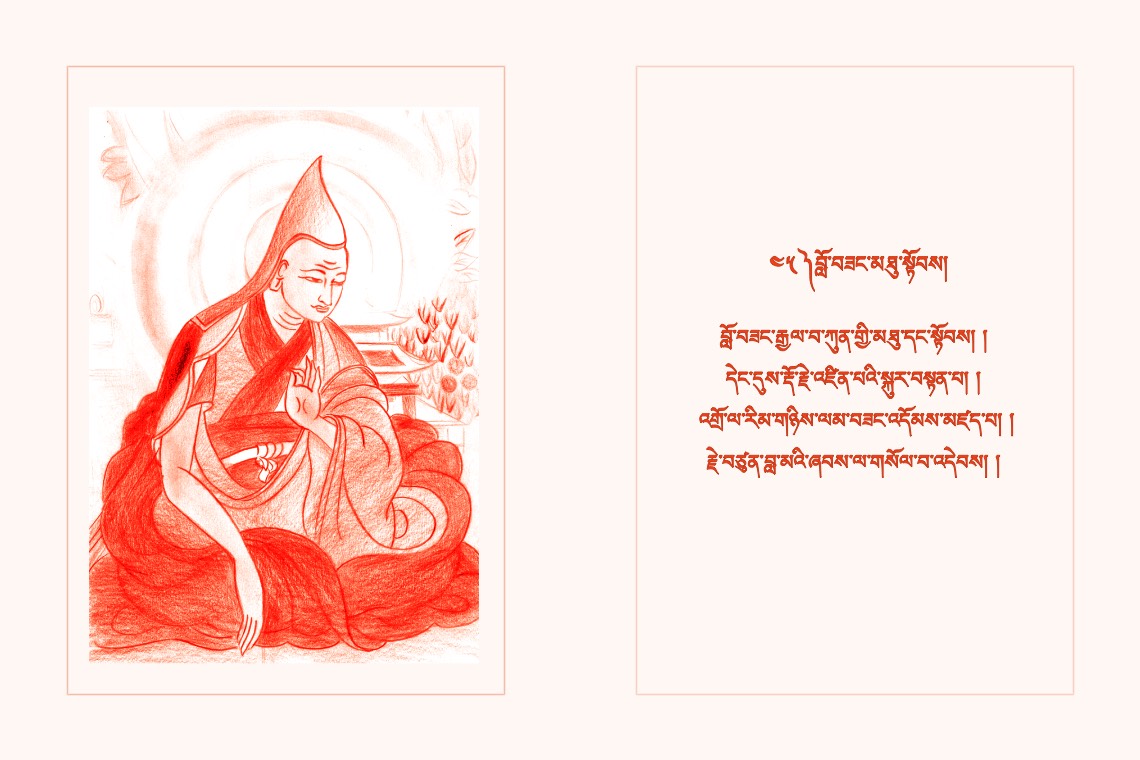 ༤༥ ༽ བློ་བཟང་མཐུ་སྟོབས།
བློ་བཟང་རྒྱལ་བ་ཀུན་གྱི་མཐུ་དང་སྟོབས། །
དེང་དུས་རྡོ་རྗེ་འཛིན་པའི་སྐུར་བསྟན་པ། །
འགྲོ་ལ་རིམ་གཉིས་ལམ་བཟང་འདོམས་མཛད་པ། །
རྗེ་བཙུན་བླ་མའི་ཞབས་ལ་གསོལ་བ་འདེབས། །